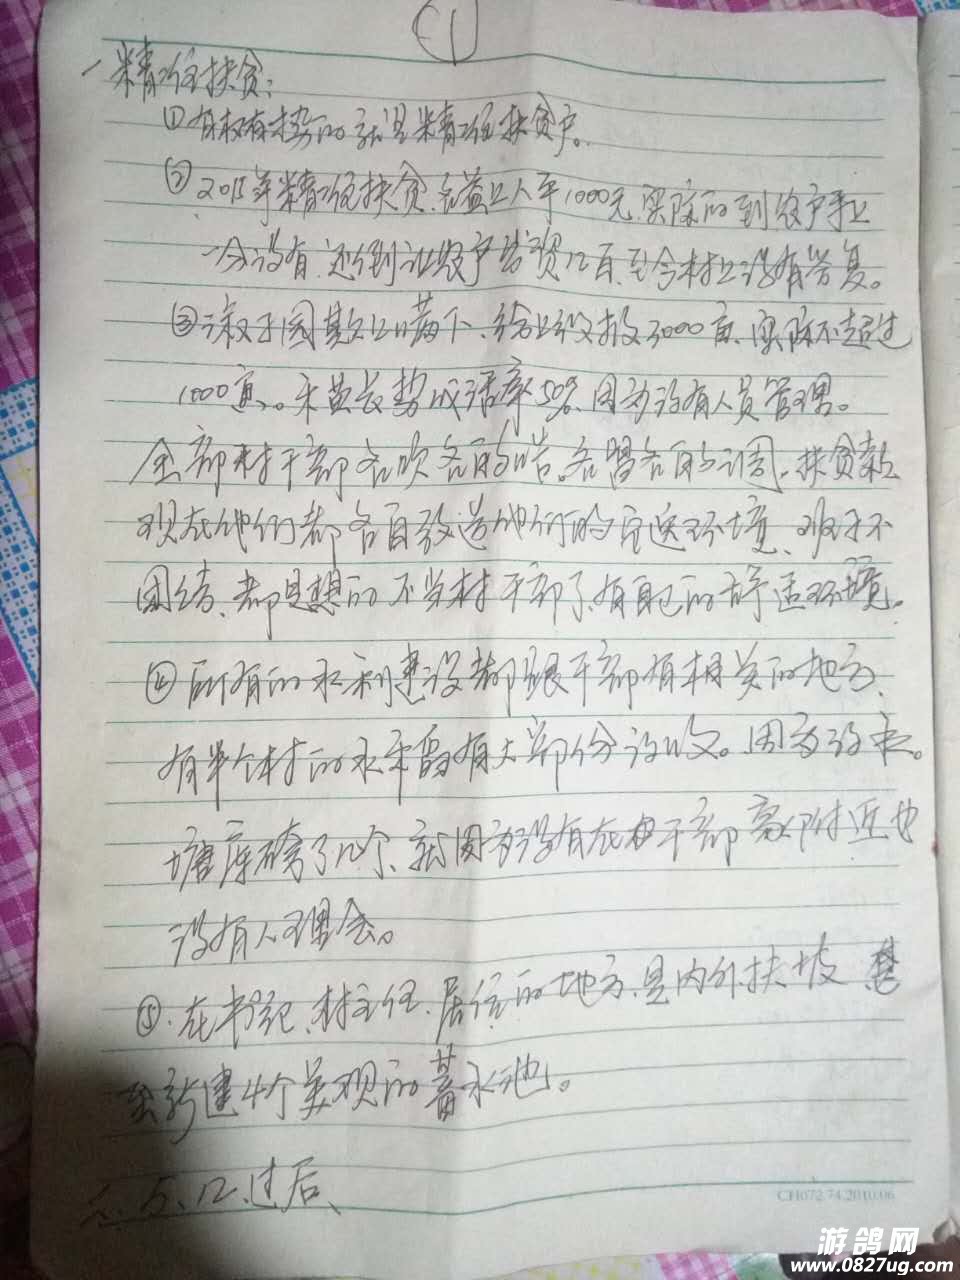 (1)
一精准扶贫:
①有权有势的就是精准扶贫户。
②2015年精准扶贫,受益上人平1000元,实际的到农户手上
一分没有,还倒让农户出资几百,至今村上没有答复。
③在国 的 下,给上级报3000亩,实际不超过
1000亩。未 长势成活率50%,因为没有人员管理。
全部村干部各吹各的 ,各唱各的调,扶贫款
现在他们都各自改造他们的 环境,班子不
团结,都是想的不当村干部了有自己的舒适环境。
④所有的水利建设都跟干部有相关的地方,
有半个村的水 有大部份没收。因为没水。
塘库 了几个,就因为没有在村干部 附近也
没有人理会。
⑤.在书记、村主任、居住的地方,是内外扶坡,
新建4个美观的蓄水池。
二、5、12、过后、
CH072 74.2010.06
游鸽网
www.0827ug.com